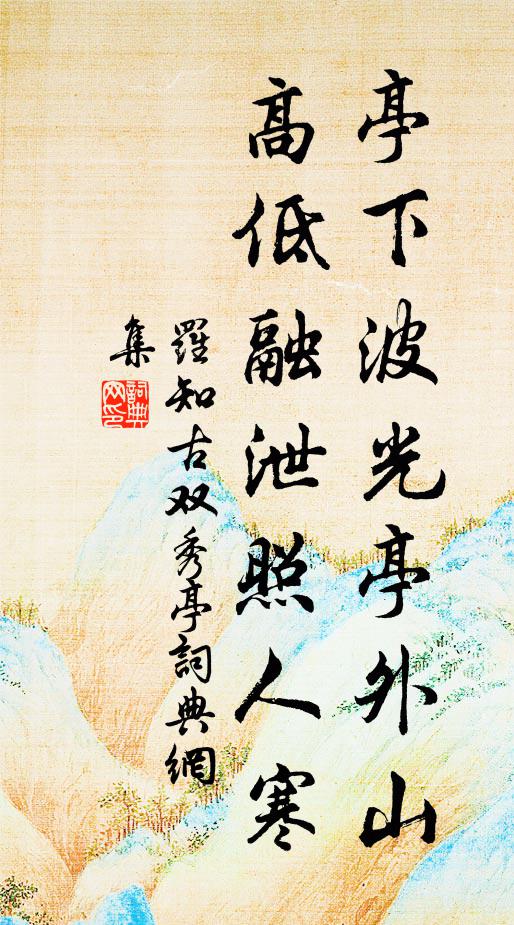 亭下波光亭外山
高低融泄照人寒
羅知古双秀亭詞典網
集
詞典
网印